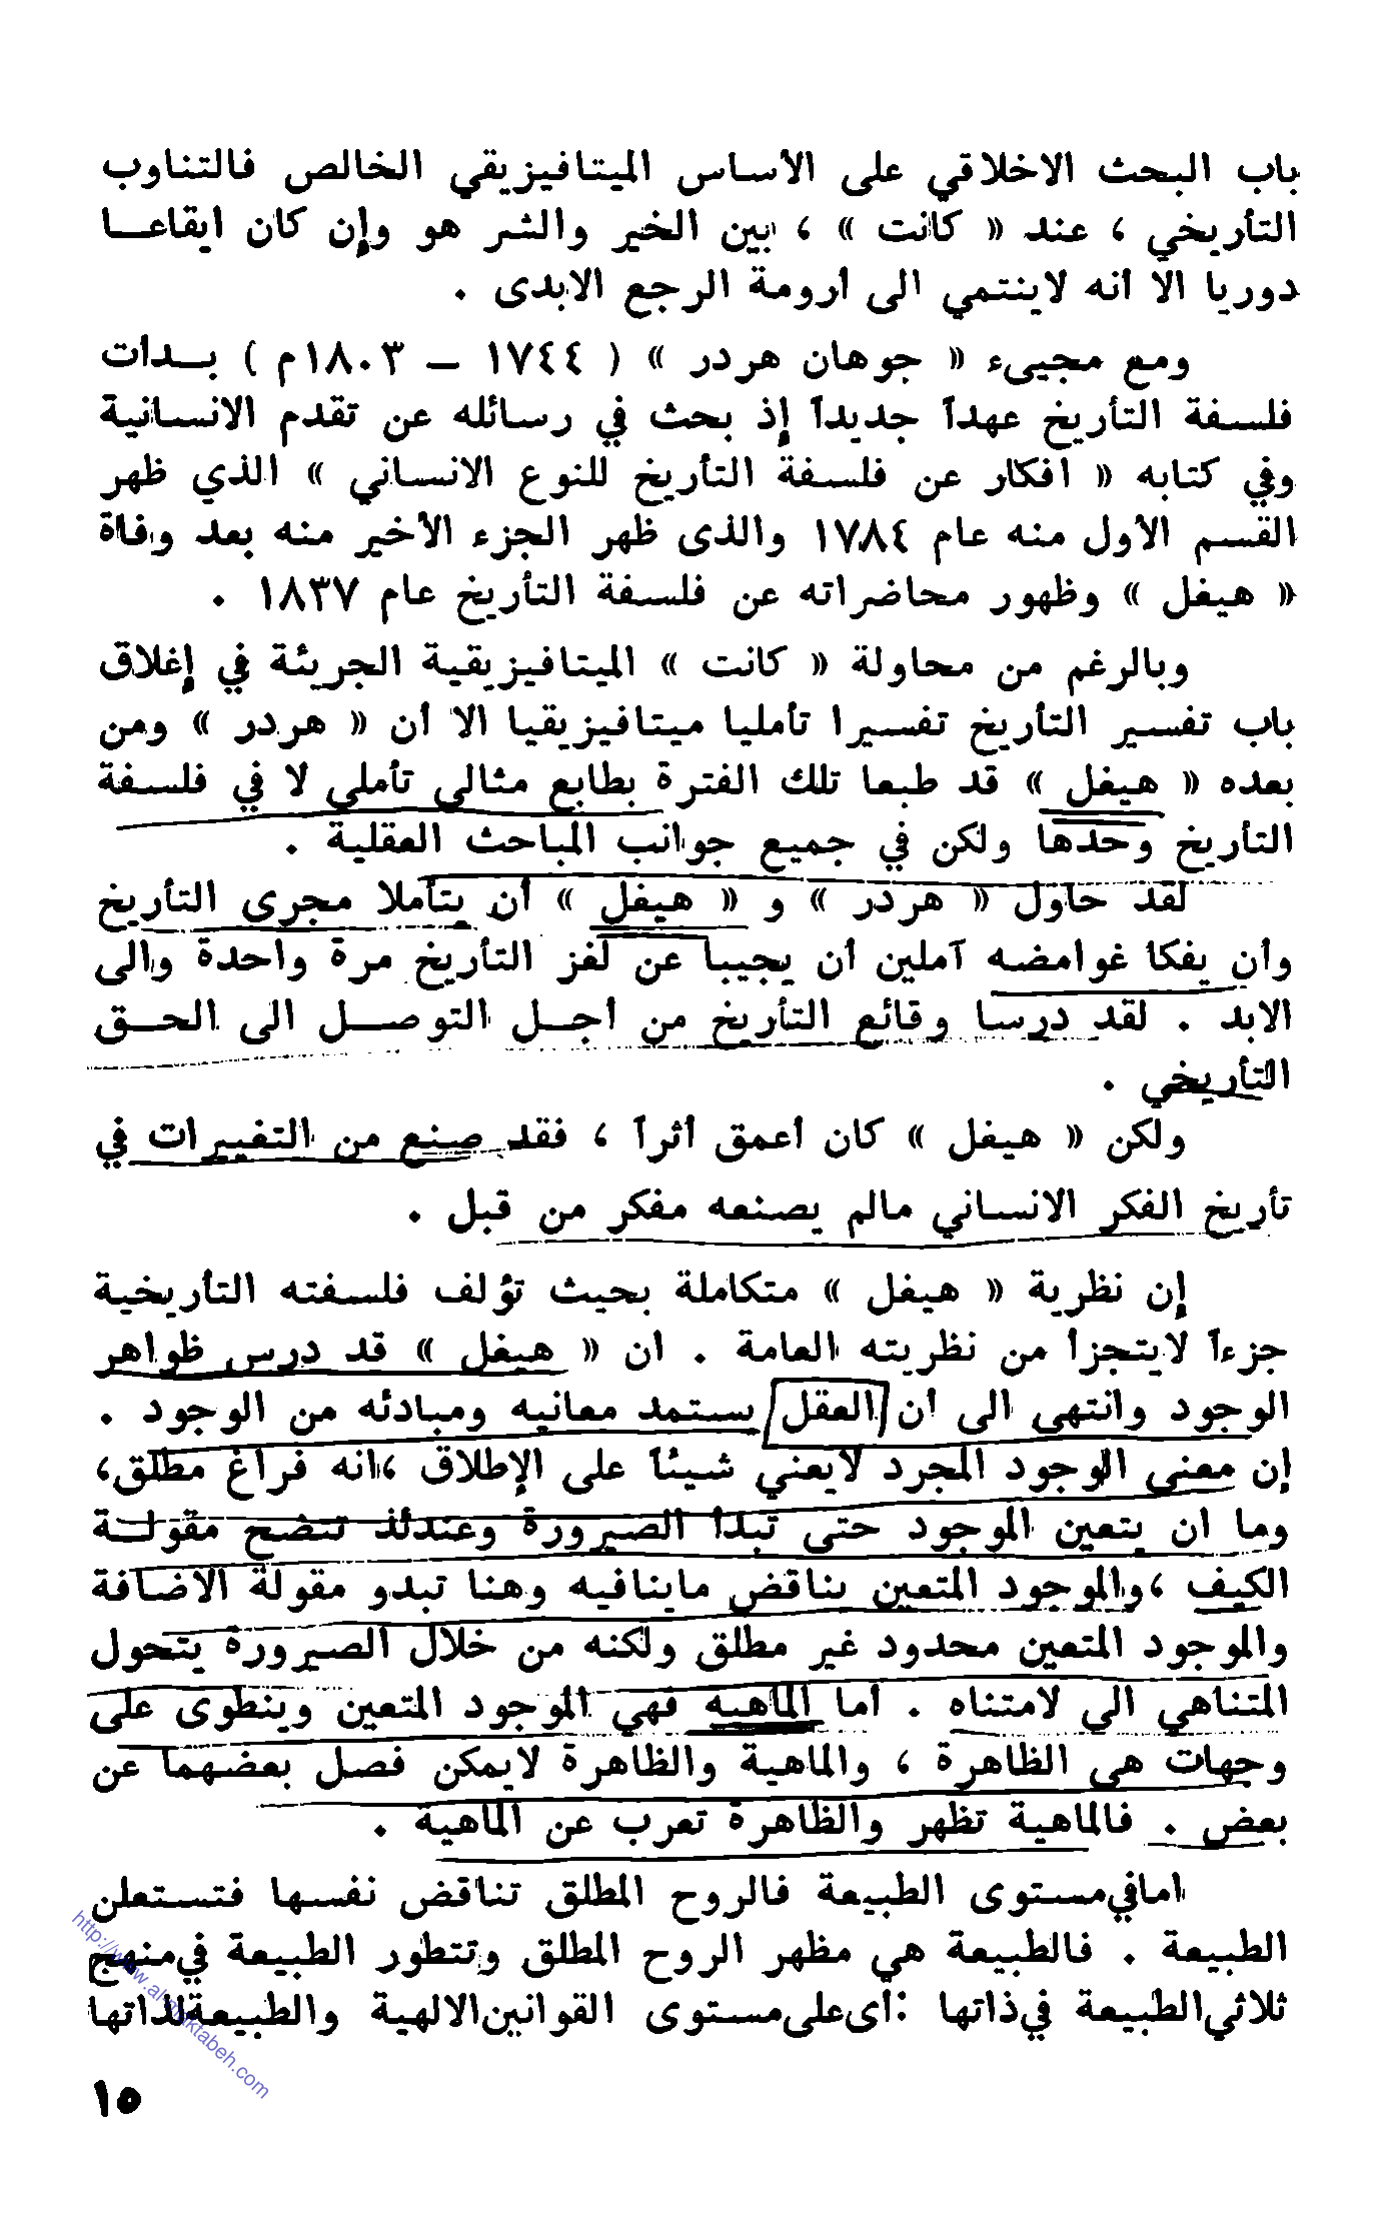 باب البحث الاخلاقي على الأساس الميتافيزيقي الخالص فالتناوب
التأريخي ، عند « كانت » ، بين الخير والشر هو وإن كان ايقاعــا
دوريا الا أنه لاينتمي الى أرومة الرجع الابدى .
ومع مجيىء « جوهان هردر » ( ١٧٤٤ – ١٨٠٣م ) بــدأت
فلسفة التأريخ عهداً جديداً إذ بحث في رسائله عن تقدم الانسانية
وفي كتابه « افكار عن فلسفة التأريخ للنوع الانساني » الذي ظهر
القسم الأول منه عام ١٧٨٤ والذى ظهر الجزء الأخير منه بعد وفاة
« هيغل » وظهور محاضراته عن فلسفة التأريخ عام ١٨٣٧ .
وبالرغم من محاولة « كانت » الميتافيزيقية الجريئة في إغلاق
باب تفسير التأريخ تفسيرا تأمليا ميتافيزيقيا الا أن « هردر » ومن
بعده « هيغل » قد طبعا تلك الفترة بطابع مثالي تأملي لا في فلسفة
التأريخ وحدها ولكن في جميع جوانب المباحث العقلية .
لقد حاول « هردر » و « هيغل » أن يتأملا مجرى التأريخ
وأن يفكا غوامضه آملين أن يجيبا عن لغز التأريخ مرة واحدة والى
الابد . لقد درسا وقائع التأريخ من أجــل التوصــل الى الحــق
التأريخي .
ولكن « هيغل » كان أعمق أثراً ، فقد صنع من التغييرات في
تأريخ الفكر الانساني مالم يصنعه مفكر من قبل .
إن نظرية « هيغل » متكاملة بحيث تؤلف فلسفته التأريخية
جزءاً لايتجزأ من نظريته العامة . ان « هيغل » قد درس ظواهر
الوجود وانتهى الى أن العقل يستمد معانيه ومبادئه من الوجود .
إن معنى الوجود المجرد لايعني شيئاً على الإطلاق ،انه فراغ مطلق،
وما ان يتعين الموجود حتى تبدأ الصيرورة وعندئذ تتضح مقولــة
الكيف ،والموجود المتعين يناقض ماينافيه وهنا تبدو مقولة الاضافة
والموجود المتعين محدود غير مطلق ولكنه من خلال الصيرورة يتحول
المتناهي الى لامتناه . أما الماهيه فهي الموجود المتعين وينطوى على
وجهات هى الظاهرة ، والماهية والظاهرة لايمكن فصل بعضهما عن
بعض . فالماهية تظهر والظاهرة تعرب عن الماهية .
امافي مستوى الطبيعة فالروح المطلق تناقض نفسها فتستعلن
الطبيعة . فالطبيعة هي مظهر الروح المطلق وتتطور الطبيعة في منهج
ثلاثي الطبيعة في ذاتها :أى على مستوى القوانين الالهية والطبيعة لذاتها
١٥